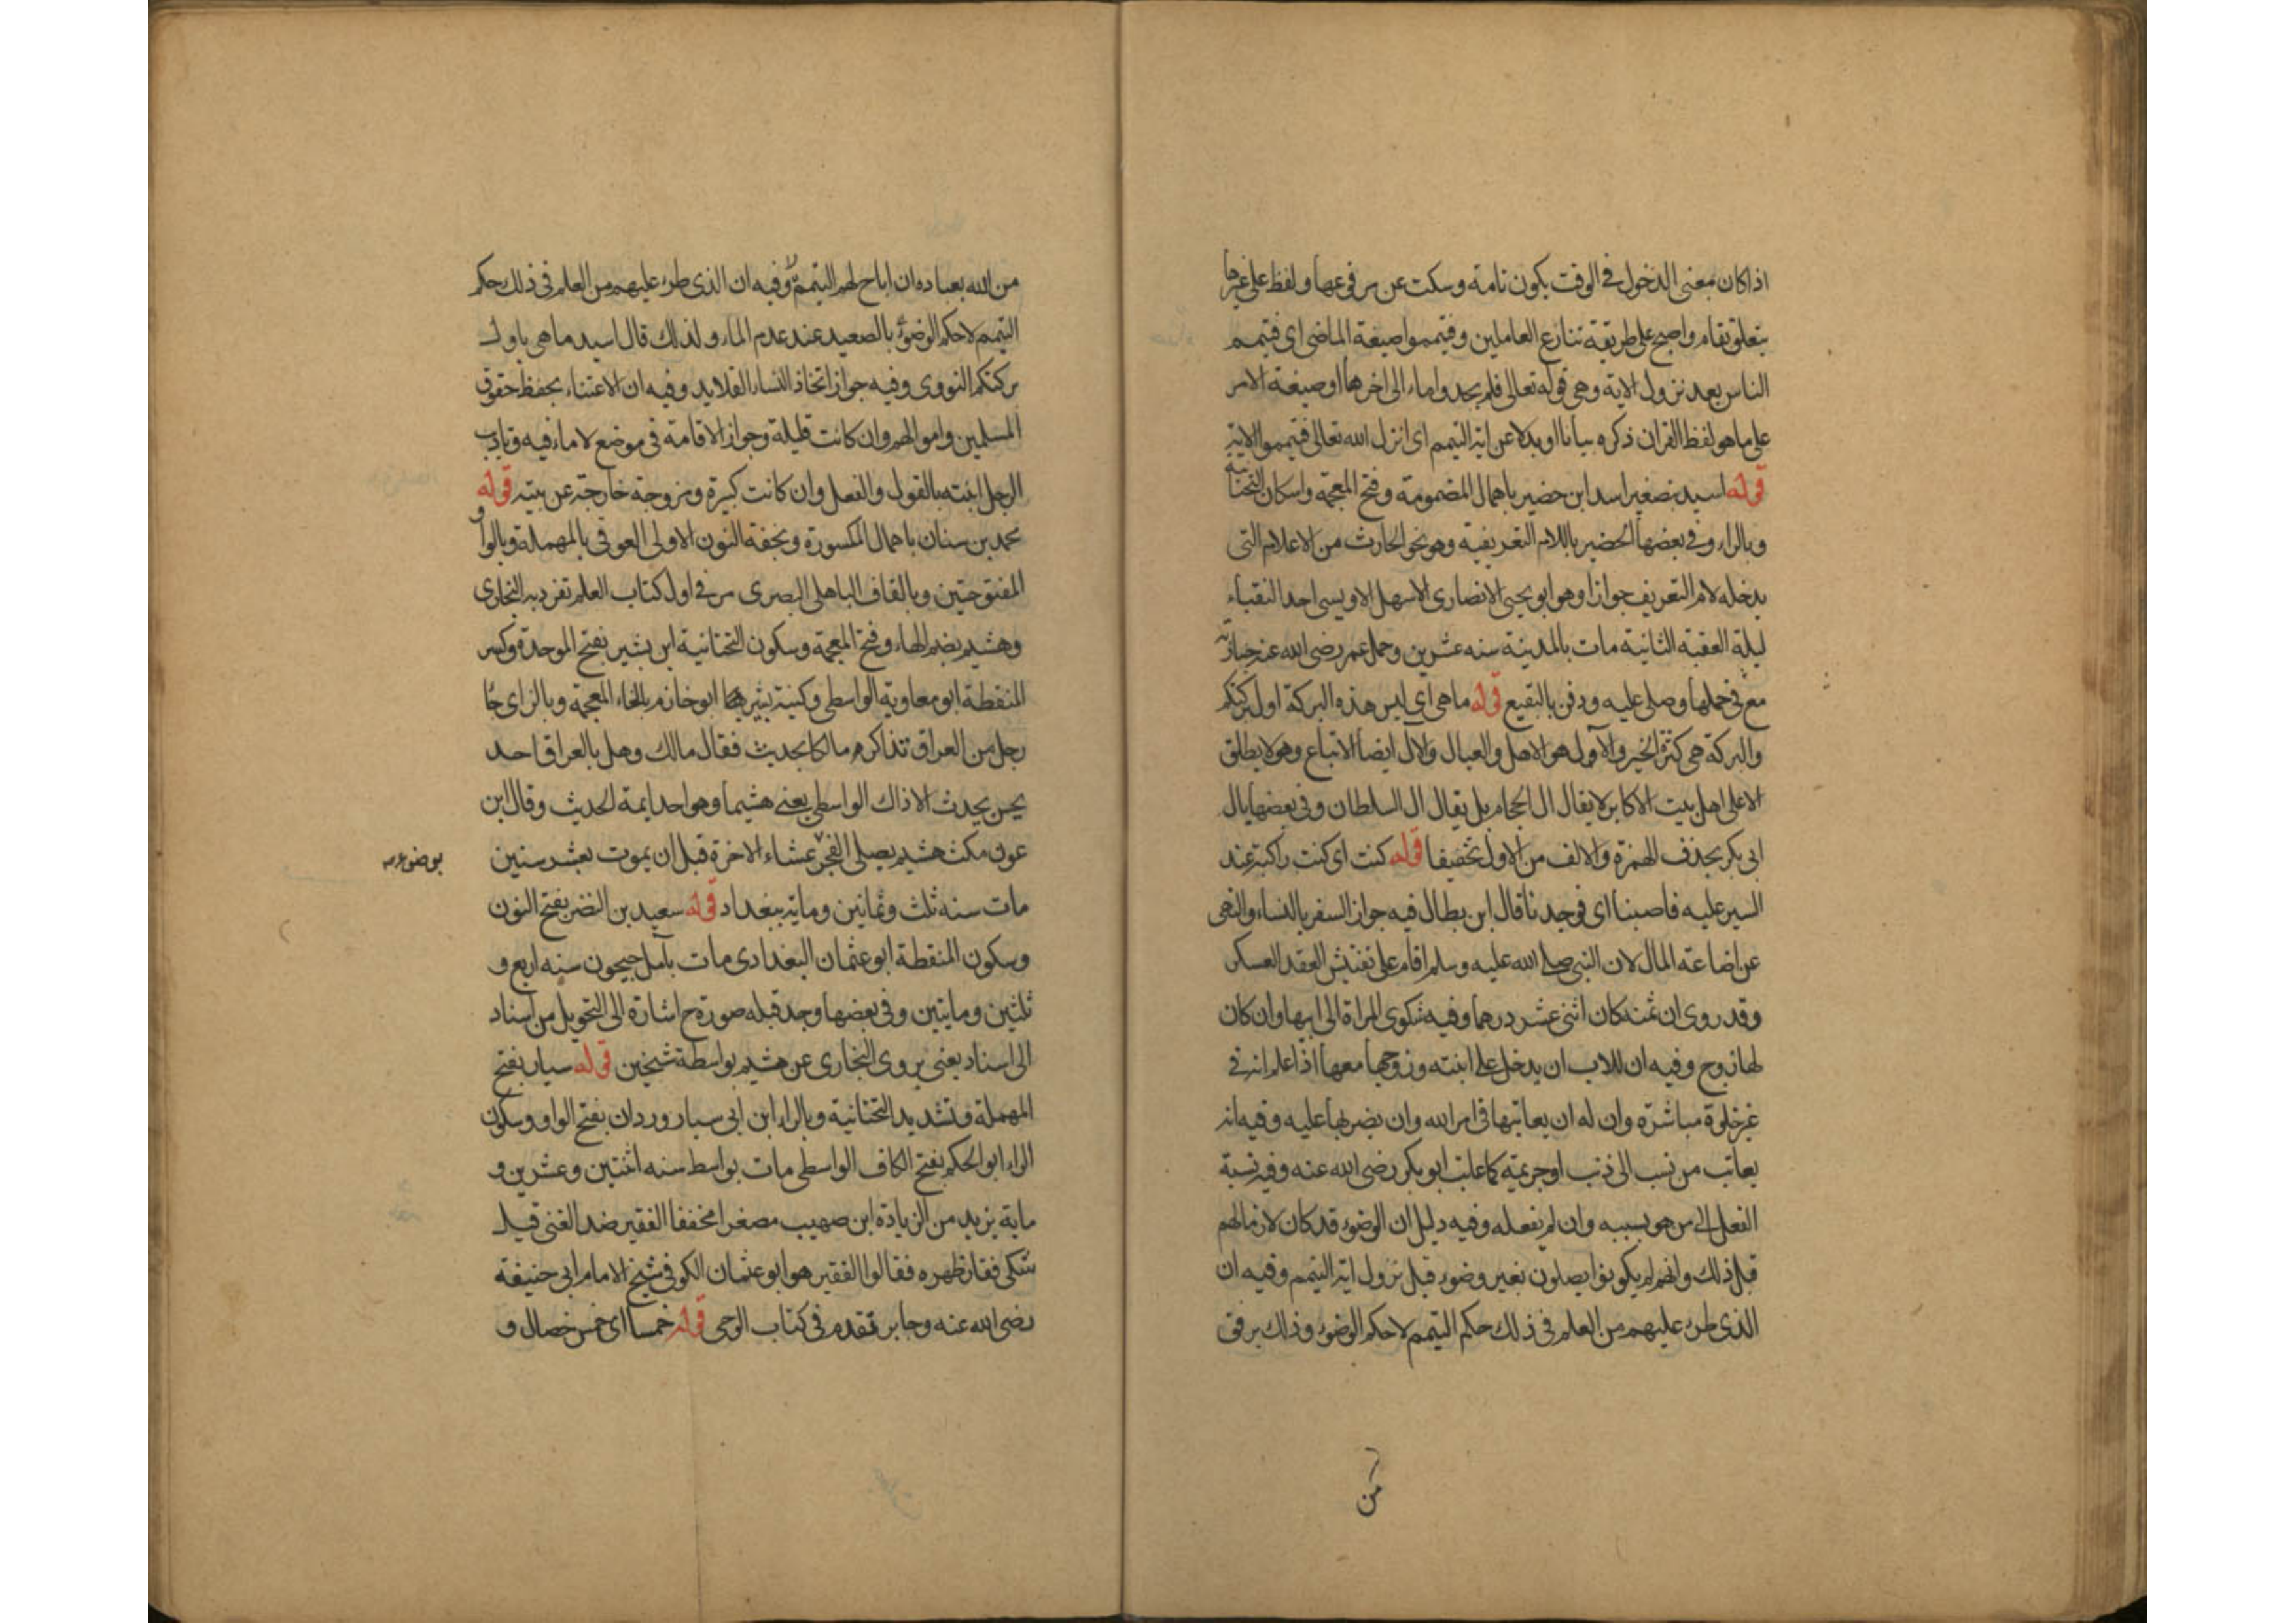 اذا كان معنى الدخول في الوقت يكون تامة وسكت عن مرفوعها ولفظ على غير ما
يتعلق بقام واصبح على طريقة تنازع العاملين وفتيمموا صيغة الماضى اى فتيمم
الناس بعد نزول الاية وهي قوله تعالى فلم يجدوا ماء الى اخرها او صيغة الامر
على ما هو لفظ القران ذكره بيانا او بدلا عن اية التيمم اى انزل الله تعالى فتيمموا الاية
قوله اسيد تصغير اسد ابن حضير باهمال المضمومة وفتح المعجمة واسكان التحتانية
وبالراء وفي بعضها الحضير باللام التعريفية وهو نحو الحارث من الاعلام التى
يدخله لام التعريف جوازا وهو ابو يحيى الانصارى الاسهل الاويسى احد النقباء
ليلة العقبة الثانية مات بالمدينة سنه عشرين وحمل عمر رضى الله عنه جنازته
مع فى حملها وصلى عليه ودفن بالبقيع قوله ما هى اى ليس هذه البركة اول بركتكم
والبركة هى كثرة الخير والآول هو الاهل والعيال والآل ايضا الاتباع وهو لا يطلق
الا على اهل بيت الاكابر لا يقال ال الحجام بل يقال ال السلطان وفى بعضها يال
ابى بكر بحذف الهمزة والالف من الاول تخفيفا قوله كنت اى كنت راكبة عند
السير عليه فاصبنا اى فوجدنا قال ابن بطال فيه جواز السفر بالنساء والنهى
عن اضاعة المال لان النبى صلى الله عليه وسلم اقام على تفتيش العقد العسكر
وقد روى ان ثمنه كان اثنى عشر درهما وفيه شكوى المراة الى ابيها وان كان
لها زوج وفيه ان للاب ان يدخل على ابنته وزوجها معها اذا علم انه في
غير خلوة مباشرة وان له ان يعاتبها فى امر الله وان يضربها عليه وفيه انه
يعاتب من نسب الى ذنب او جريمة كما عاتب ابو بكر رضى الله عنه وفيه نسبة
الفعل الى من هو بسببه وان لم يفعله وفيه دليل ان الوضوء قد كان لازما لهم
قبل ذلك وانهم لم يكونوا يصلون بغير وضوء قبل نزول اية التيمم وفيه ان
الذى طرء عليهم من العلم فى ذلك حكم التيمم لا حكم الوضوء وذلك برفق
من
من الله بعباده ان اباح لهم التيمم وفيه ان الذى طرء عليهم من العلم فى ذلك حكم
التيمم لا حكم الوضوء بالصعيد عند عدم الماء ولذلك قال اسيد ما هى باول
بركتكم النووى وفيه جواز اتخاذ النساء القلايد وفيه ان الاعتناء بحفظ حقوق
المسلمين واموالهم وان كانت قليلة وجواز الاقامة فى موضع لا ماء فيه وتاديب
الرجل ابنته بالقول والفعل وان كانت كبيرة ومزوجة خارجة عن بيته قوله
محمد بن سنان باهمال المكسورة وبخفة النون الاولى العوقى بالمهملة وبالواو
المفتوحتين وبالقاف الباهلى البصرى مر في اول كتاب العلم تفرد به البخارى
وهشيم بضم الهاء وفتح المعجمة وسكون التحتانية ابن بشير بفتح الموحدة وكسر
المنقطة ابو معاوية الواسطى وكنية بشير ابو خازم بالخاء المعجمة وبالزاى جا
رجل من العراق تذاكره مالكا بحديث فقال مالك وهل بالعراق احد
يحسن يحدث الا ذاك الواسطى يعنى هشيما وهو احد ايمة الحديث وقال ابن
عون مكث هشيم يصلى الفجر عشاء الاخرة قبل ان يموت بعشر سنين
بوضوء
مات سنه ثلث وثمانين وماية ببغداد قوله سعيد بن النضر بفتح النون
وسكون المنقطة ابو عثمان البغدادى مات بآمل جيحون سنه اربع و
ثلثين ومايتين وفى بعضها وجد قبله صورة ح اشارة الى التحويل من اسناد
الى اسناد يعنى يروى البخارى عن هشيم بواسطة شيخين قوله سيار بفتح
المهملة وتشديد التحتانية وبالراء ابن ابى سيار وردان بفتح الواو وسكون
الراء ابو الحكم بفتح الكاف الواسطى مات بواسط سنه اثنتين وعشرين و
ماية يزيد من الزيادة ابن صهيب مصغرا مخففا الفقير ضد الغنى قيل
شكى فقار ظهره فقالوا الفقير هو ابو عثمان الكوفى شيخ الامام ابى حنيفة
رضى الله عنه وجابر تقدم فى كتاب الوحى قوله خمسا اى خمس خصال و